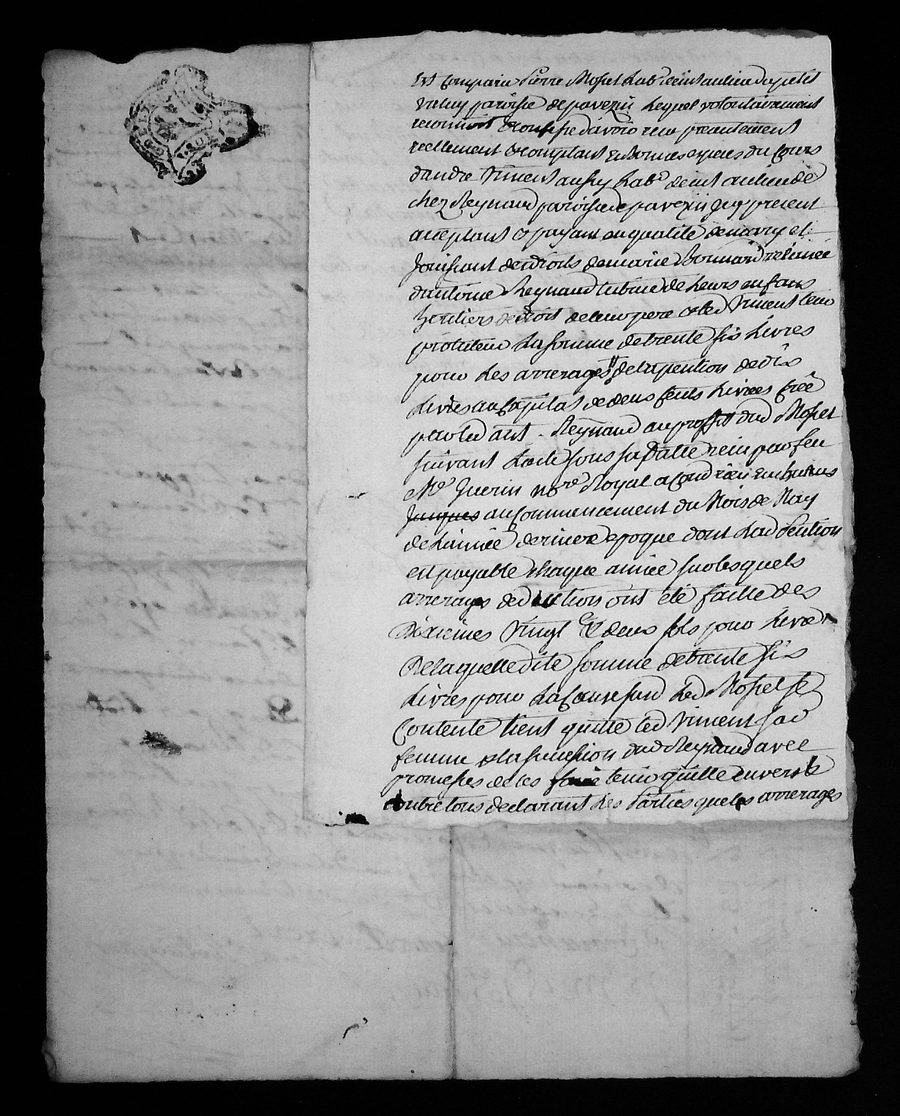 Est comparu Pierre Mosel Lab.r resident au lieu du petit
Valuy paroisse de pavezin Lequel volontairement
reconnoit & confesse d'avoir receu presentement
reellement & comptant en bonnes especes du Cours
d'andre Vincent aussy Lab.r demeurant au lieu de
chez Reynaud paroisse de pavezin icy present
acceptant & payant en qualité de mary et
Jouissant des droits de marie Bonnard relaissée
d'antoine Reynaud tutrice de Leurs enfans
heritiers de droit de leur pere & led Vincent leur
protuteur La somme de trente six Livres
pour Les arrerages de la pention de dix
Livres au Capital de deux cents Livres créé
par led ant. Reynaud au proffit dud Mosel
suivant L'acte sous sa datte reçu par feu
Me Guerin no.re Royal a Condrieu
au Commencement du Mois de May
de L'année derniere epoque dont Lad Pention
est payable chaque année sur lesquels
arrerages deduction ont été faitte des
Dixiemes Vingt.e & deux sols pour Livre
De laquelle dite somme de trente six
Livres pour La Cause susd Led Mosel se
Contente tient quitte led Vincent sad
femme & la succession dud Reynaud avec
promesses de les faire tenir quitte envers &
Contre tous declarant Les Parties que les arrerages